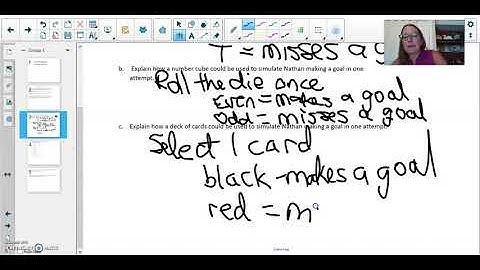 T = misses a g
b. Explain how a number cube could be used to simulate Nathan making a goal in one
attempt.
Roll the die once
Even = makes a goal
Odd = misses a goal
c. Explain how a deck of cards could be used to simulate Nathan making a goal in one attempt.
Select 1 card
black - makes a goal
red = m